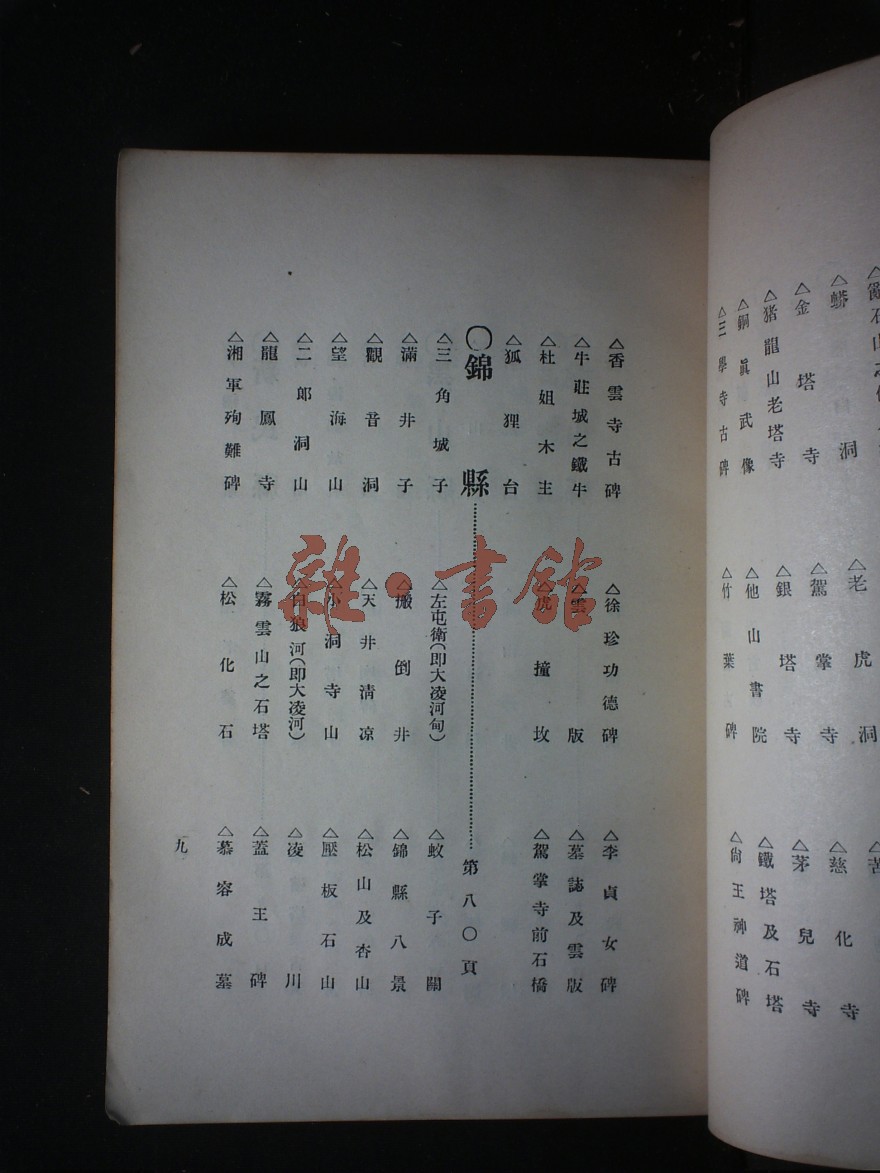 △蟒洞 △老虎洞 △苦
△金塔寺 △駕掌寺 △慈化寺
△猪龍山老塔寺 △銀塔寺 △茅兒寺
△銅眞武像 △他山書院 △鐵塔及石塔
△三學寺古碑 △竹葉碑 △尙王神道碑
△香雲寺古碑 △徐珍功德碑 △李貞女碑
△牛莊城之鐵牛 △雲版 △墓誌及雲版
△杜姐木主 △虎撞坟 △駕掌寺前石橋
△狐狸台
〇錦縣……第八〇頁
△三角山城子 △左屯衛(即大凌河甸) △蚊子關
△滿井子 △搬倒井 △錦縣八景
△觀音洞 △天井清凉 △松山及杏山
△望海山 △小洞寺山 △壓板石山
△二郎洞山 △白狼河(即大凌河) △凌川
△龍鳳寺 △霧雲山之石塔 △蓋王碑
△湘軍殉難碑 △松化石 △慕容成墓
九
雜·書館